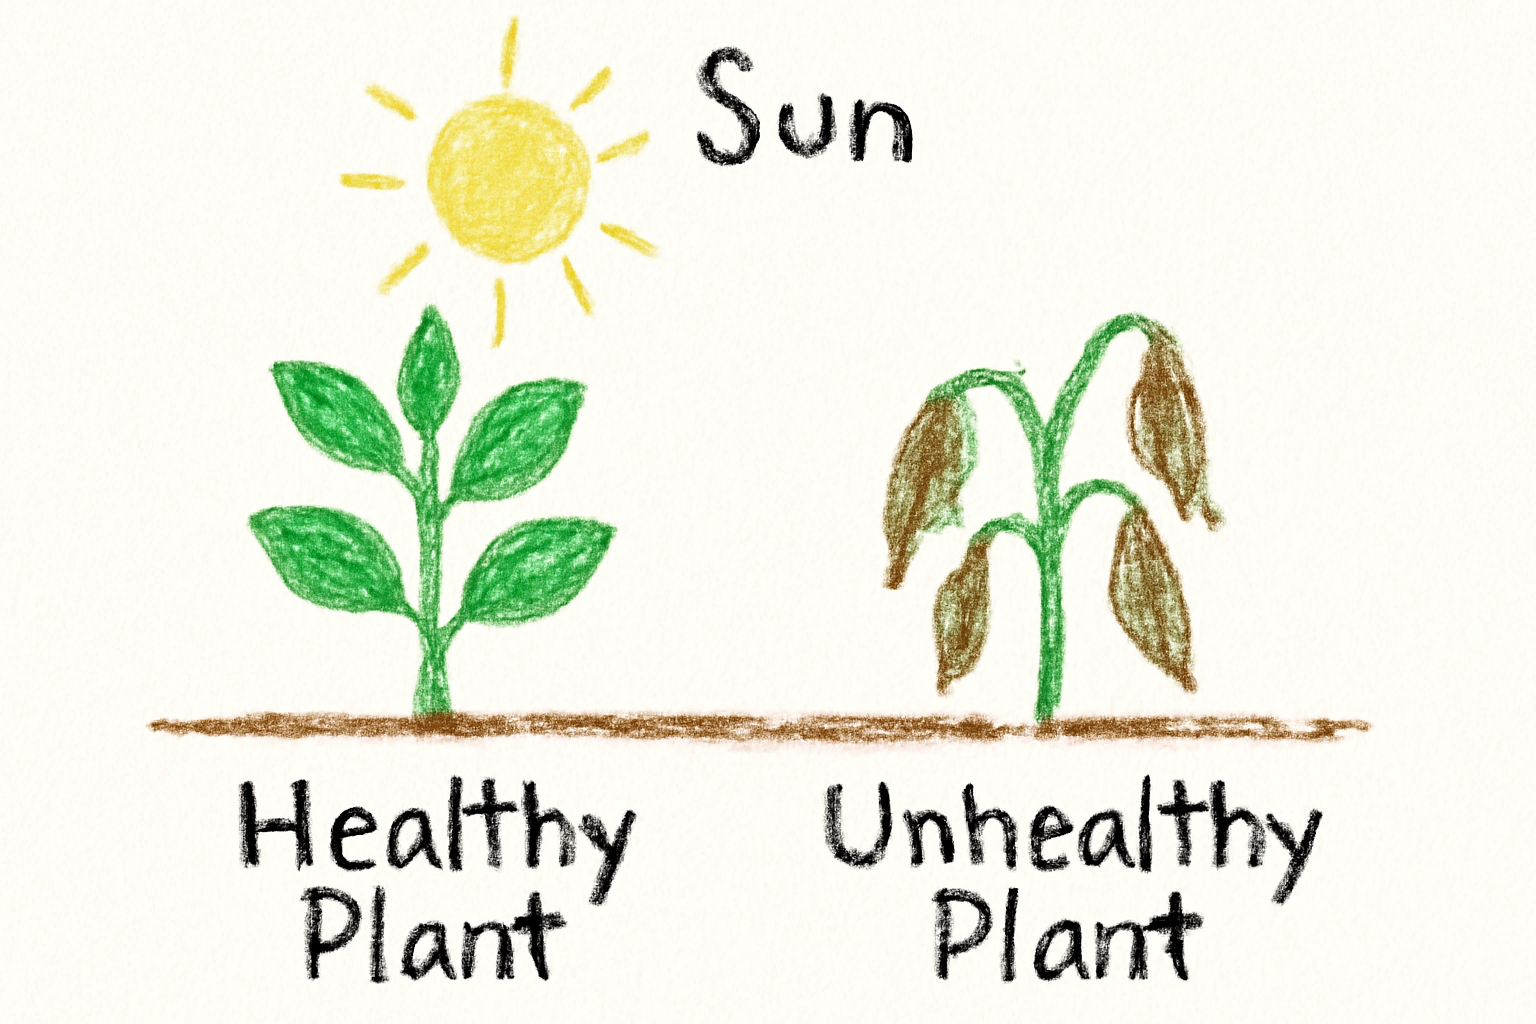 Sun
Healthy
Plant
Unhealthy
Plant